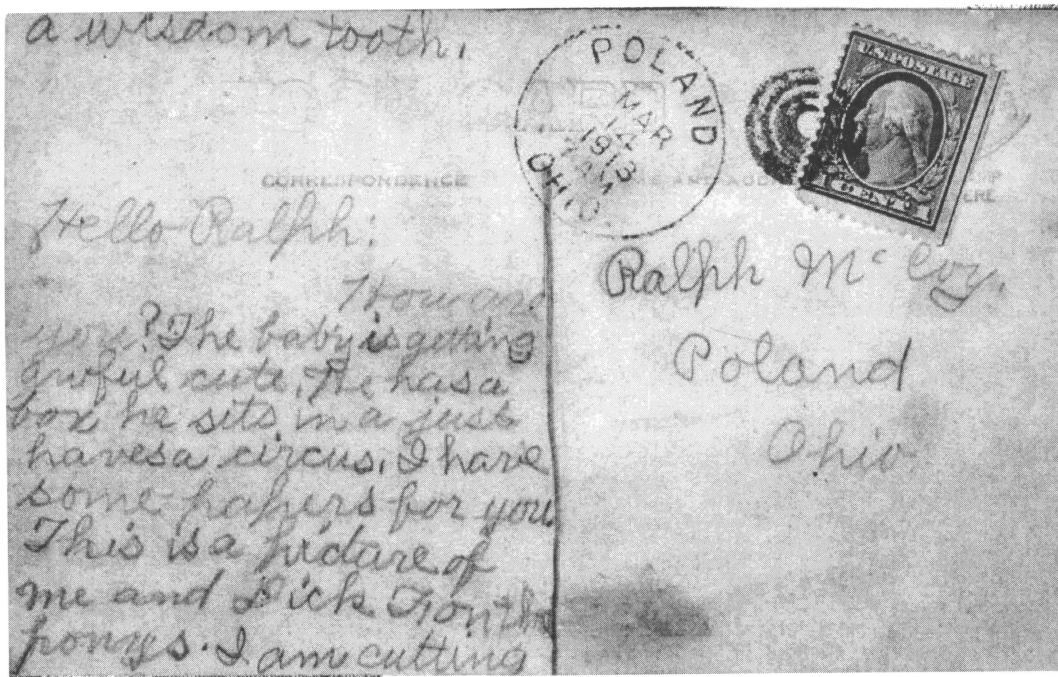 a wisdom tooth.
POLAND
MAR
14
1913
OHIO
U.S. POSTAGE
CORRESPONDENCE
Hello Ralph:
How are
you? The baby is getting
awful cute. He has a
box he sits in a just
haves a circus. I have
some papers for you
This is a picture of
me and Dick on the
ponys. I am cutting
Ralph Mc Coy.
Poland
Ohio